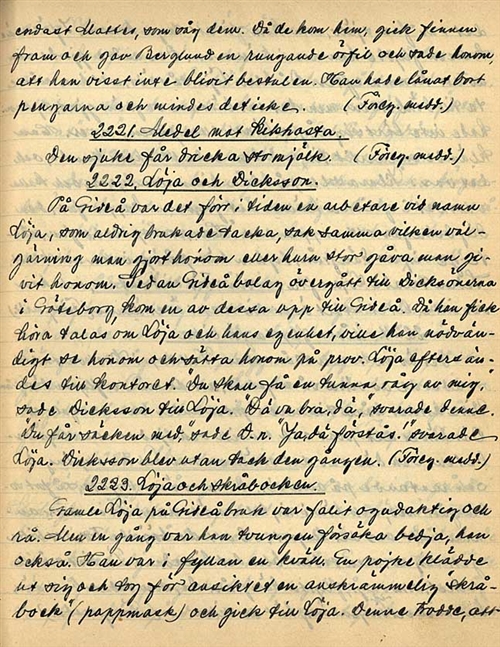 endast Mattes, som såg dem. Då de kom hem, gick finnen
fram och gav Berglund en rungande örfil och sade honom,
att han visst inte blivit bestulen. Han hade lånat bort
pengarna och mindes det icke. (Föreg. medd.)
2221. Medel mot kikhosta.
Den sjuke får dricka stomjölk. (Föreg. medd.)
2222. Löja och Dicksson.
På Gideå var det förr i tiden en arbetare vid namn
Löja, som aldrig brukade tacka, sak samma vilken väl-
gärning man gjort honom eller huru stor gåva man gi-
vit honom. Sedan Gideå bolag övergått till Dicksönerna
i Göteborg kom en av dessa upp till Gideå. Då han fick
höra talas om Löja och hans egenhet, ville han nödvän-
digt se honom och sätta honom på prov. Löja eftersän-
des till kontoret. "Du skall få en tunna råg av mig,"
sade Dicksson till Löja. "Dä va bra, dä," svarade denne.
"Du får säcken med," sade D. n. "Ja, dä förstås!" svarade
Löja. Dicksson blev utan tack den gången. (Föreg. medd.)
2223. Löja och skråbocken.
Gamle Löja på Gideå bruk var falit ogudaktig och
rå. Men en gång var han tvungen försöka bedja, han
också. Han var i fyllan en kväll. En pojke klädde
ut sig och tog för ansiktet en avskrämmelig skrå-
bock" (pappmask) och gick till Löja. Denne trodde, att